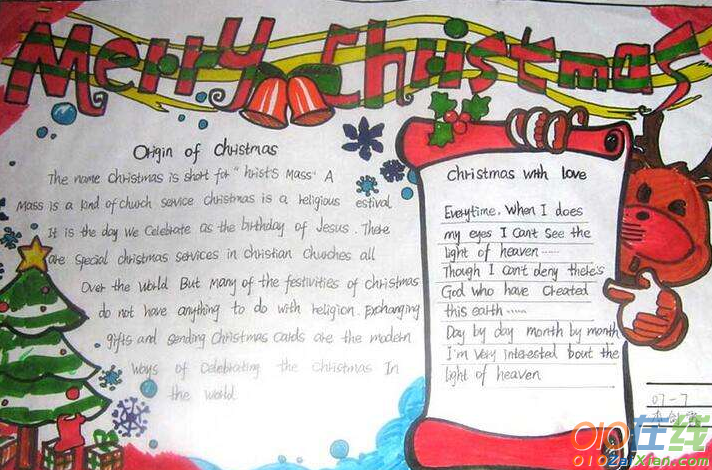 Merry Christmas
Origin of Christmas
The name Christmas is short for "hrist's Mass' A
Mass is a kind of church service christmas is a religious estival
It is the day we celebrate as the birthday of Jesus. There
are special christmas services in christian churches all
Over the world But many of the festivities of christmas
do not have anything to do with religion. Exchanging
gifts and sending Christmas cards are the modern
ways of Celebrating the christmas In
the world
Christmas with love
Everytime, When I does
my eyes I Can't See the
light of heaven ......
Though I can't deny there's
God who have Created
this earth ......
Day by day month by month
I'm very interested bout the
light of heaven
07-7
010在线
010ZaiXian.com